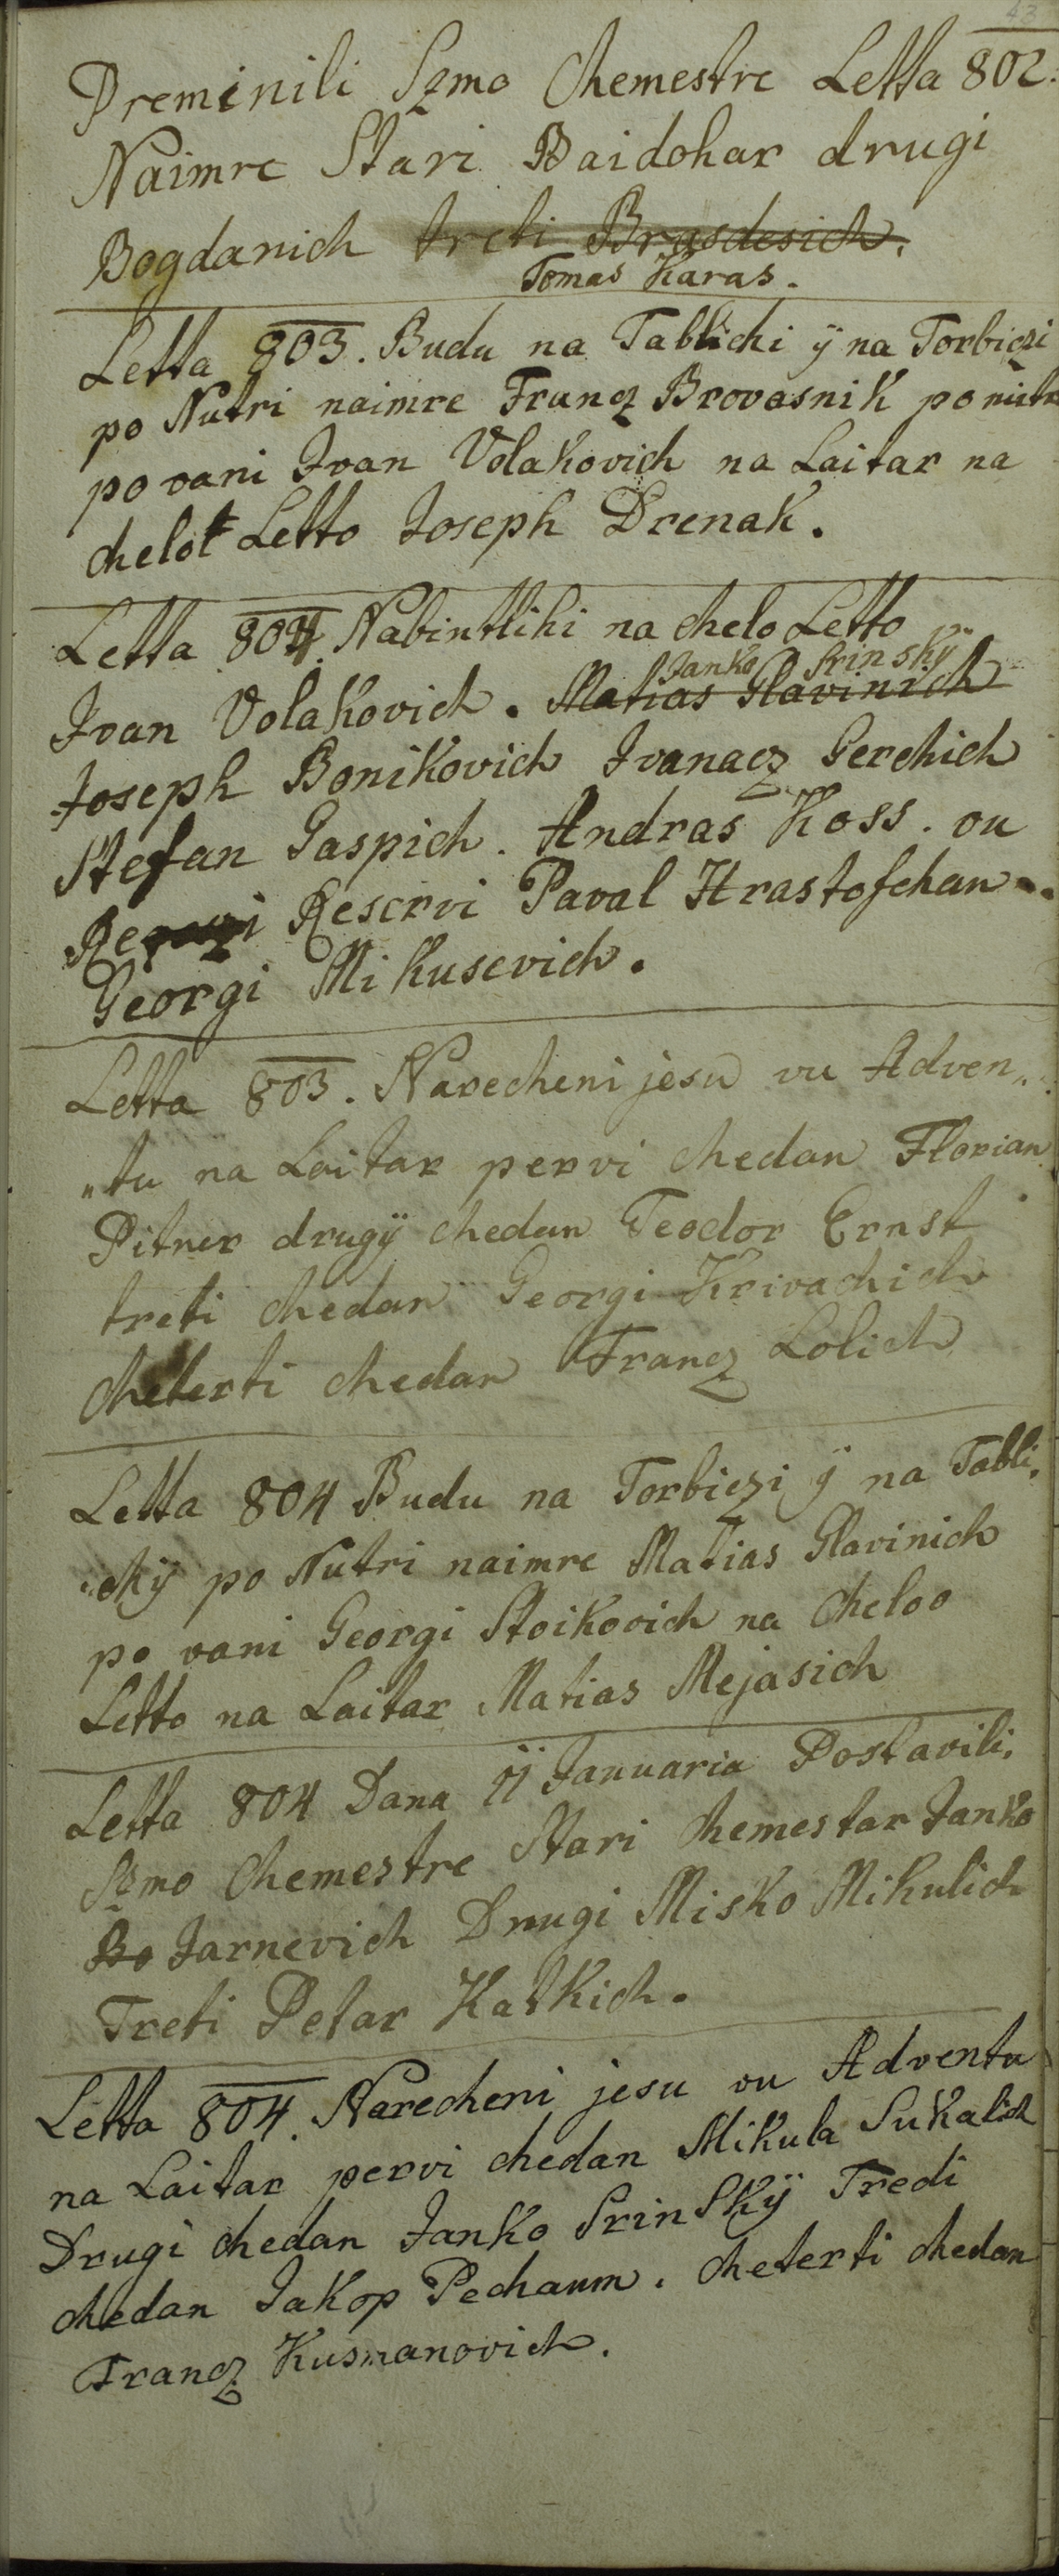 43
Preminili Szmo Chemestre Letta 802.
Naimre Stari Baidohar drugi
Bogdanich treti Brasdesich.
Tomas Karas.
Letta 803. Budu na Tablichi ÿ na Torbiczi
po Nutri naimre Francz Brovasnik po nutr
po vani Ivan Volakovich na Laitar na
chelot Letto Joseph Drenak.
Letta 804. Nabintlihi na chelo Letto
Janko Prinskÿ
Ivan Volakovich. Matias Slavinich
Joseph Bonikovich Ivanacz Gerchich
Stefan Gaspich. Andras Koss. vu
Reservi Paval Hrastofchan.
Georgi Mikusevich.
Letta 803. Narecheni jesu vu Adven„
„tu na Laitar pervi chedan Florian
Pitner drugÿ chedan Teodor Ernst
treti chedan Georgi Krivachich
cheterti chedan Francz Lolich
Letta 804 Budu na Torbiczi ÿ na Tabli„
„chÿ po Nutri naimre Matias Slavinich
po vani Georgi Stoikovich na cheloo
Letto na Laitar Matias Mejasich
Letta 804 Dana 11 Januaria Postavili
Szmo Chemestre Stari Chemestar Janko
Bo Jarnevich Drugi Misko Mikulich
Treti Petar Katkich.
Letta 804. Narecheni jesu vu Adventu
na Laitar pervi chedan Mikula Sukalich
Drugi chedan Janko Prinskÿ Tredi
chedan Jakop Pechaum. cheterti chedan
Francz Kusmanovich.